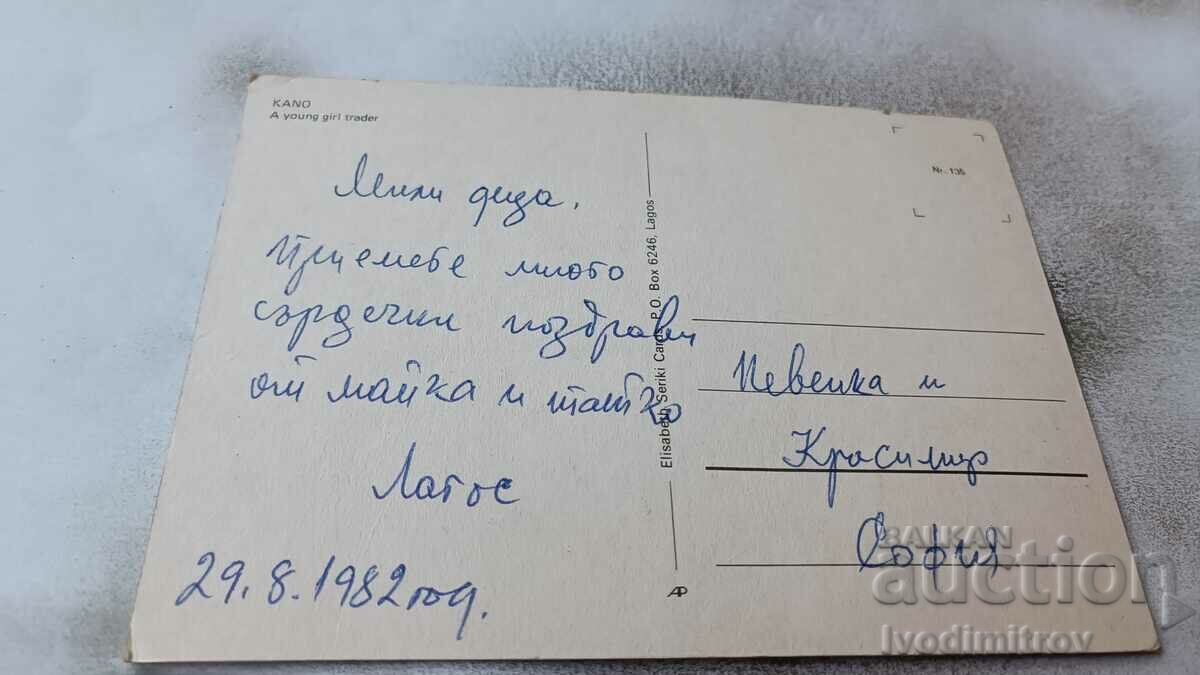 KANO
A young girl trader
Мили деца,
Приемете много
сърдечни поздрави
от майка и татко
Лагос
29.8.1982 год.
Elisabeth Seriki Cards, P.O. Box 6246, Lagos
AP
Nr. 135
Невенка и
Красимир
София
BALKAN
auction
Ivodimitrov